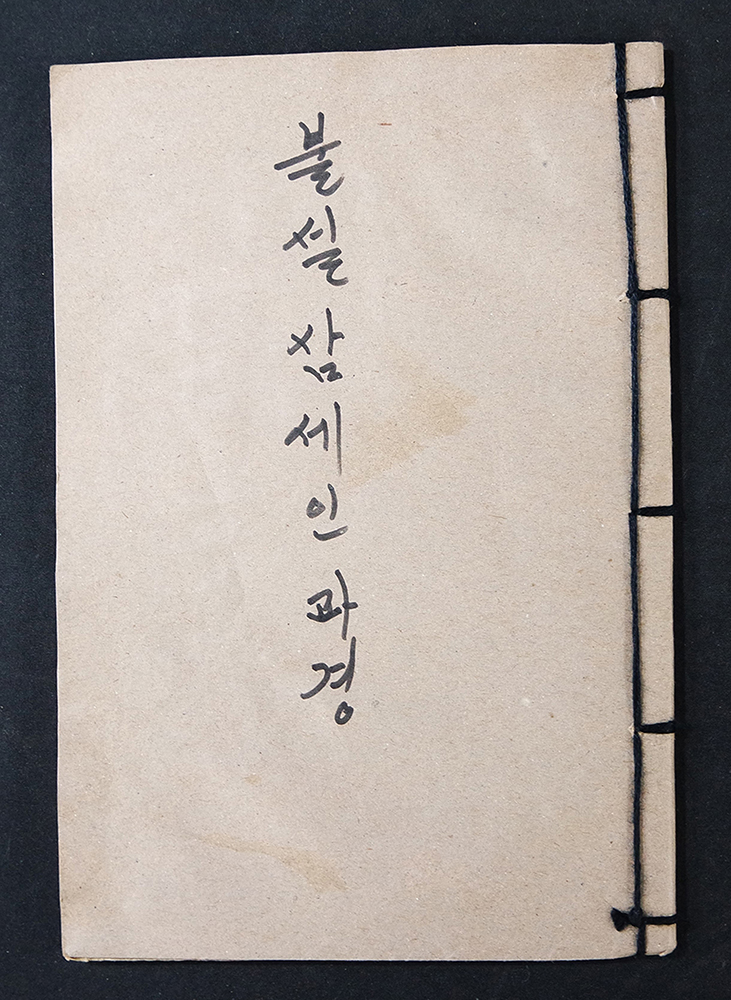 불설삼세인과경